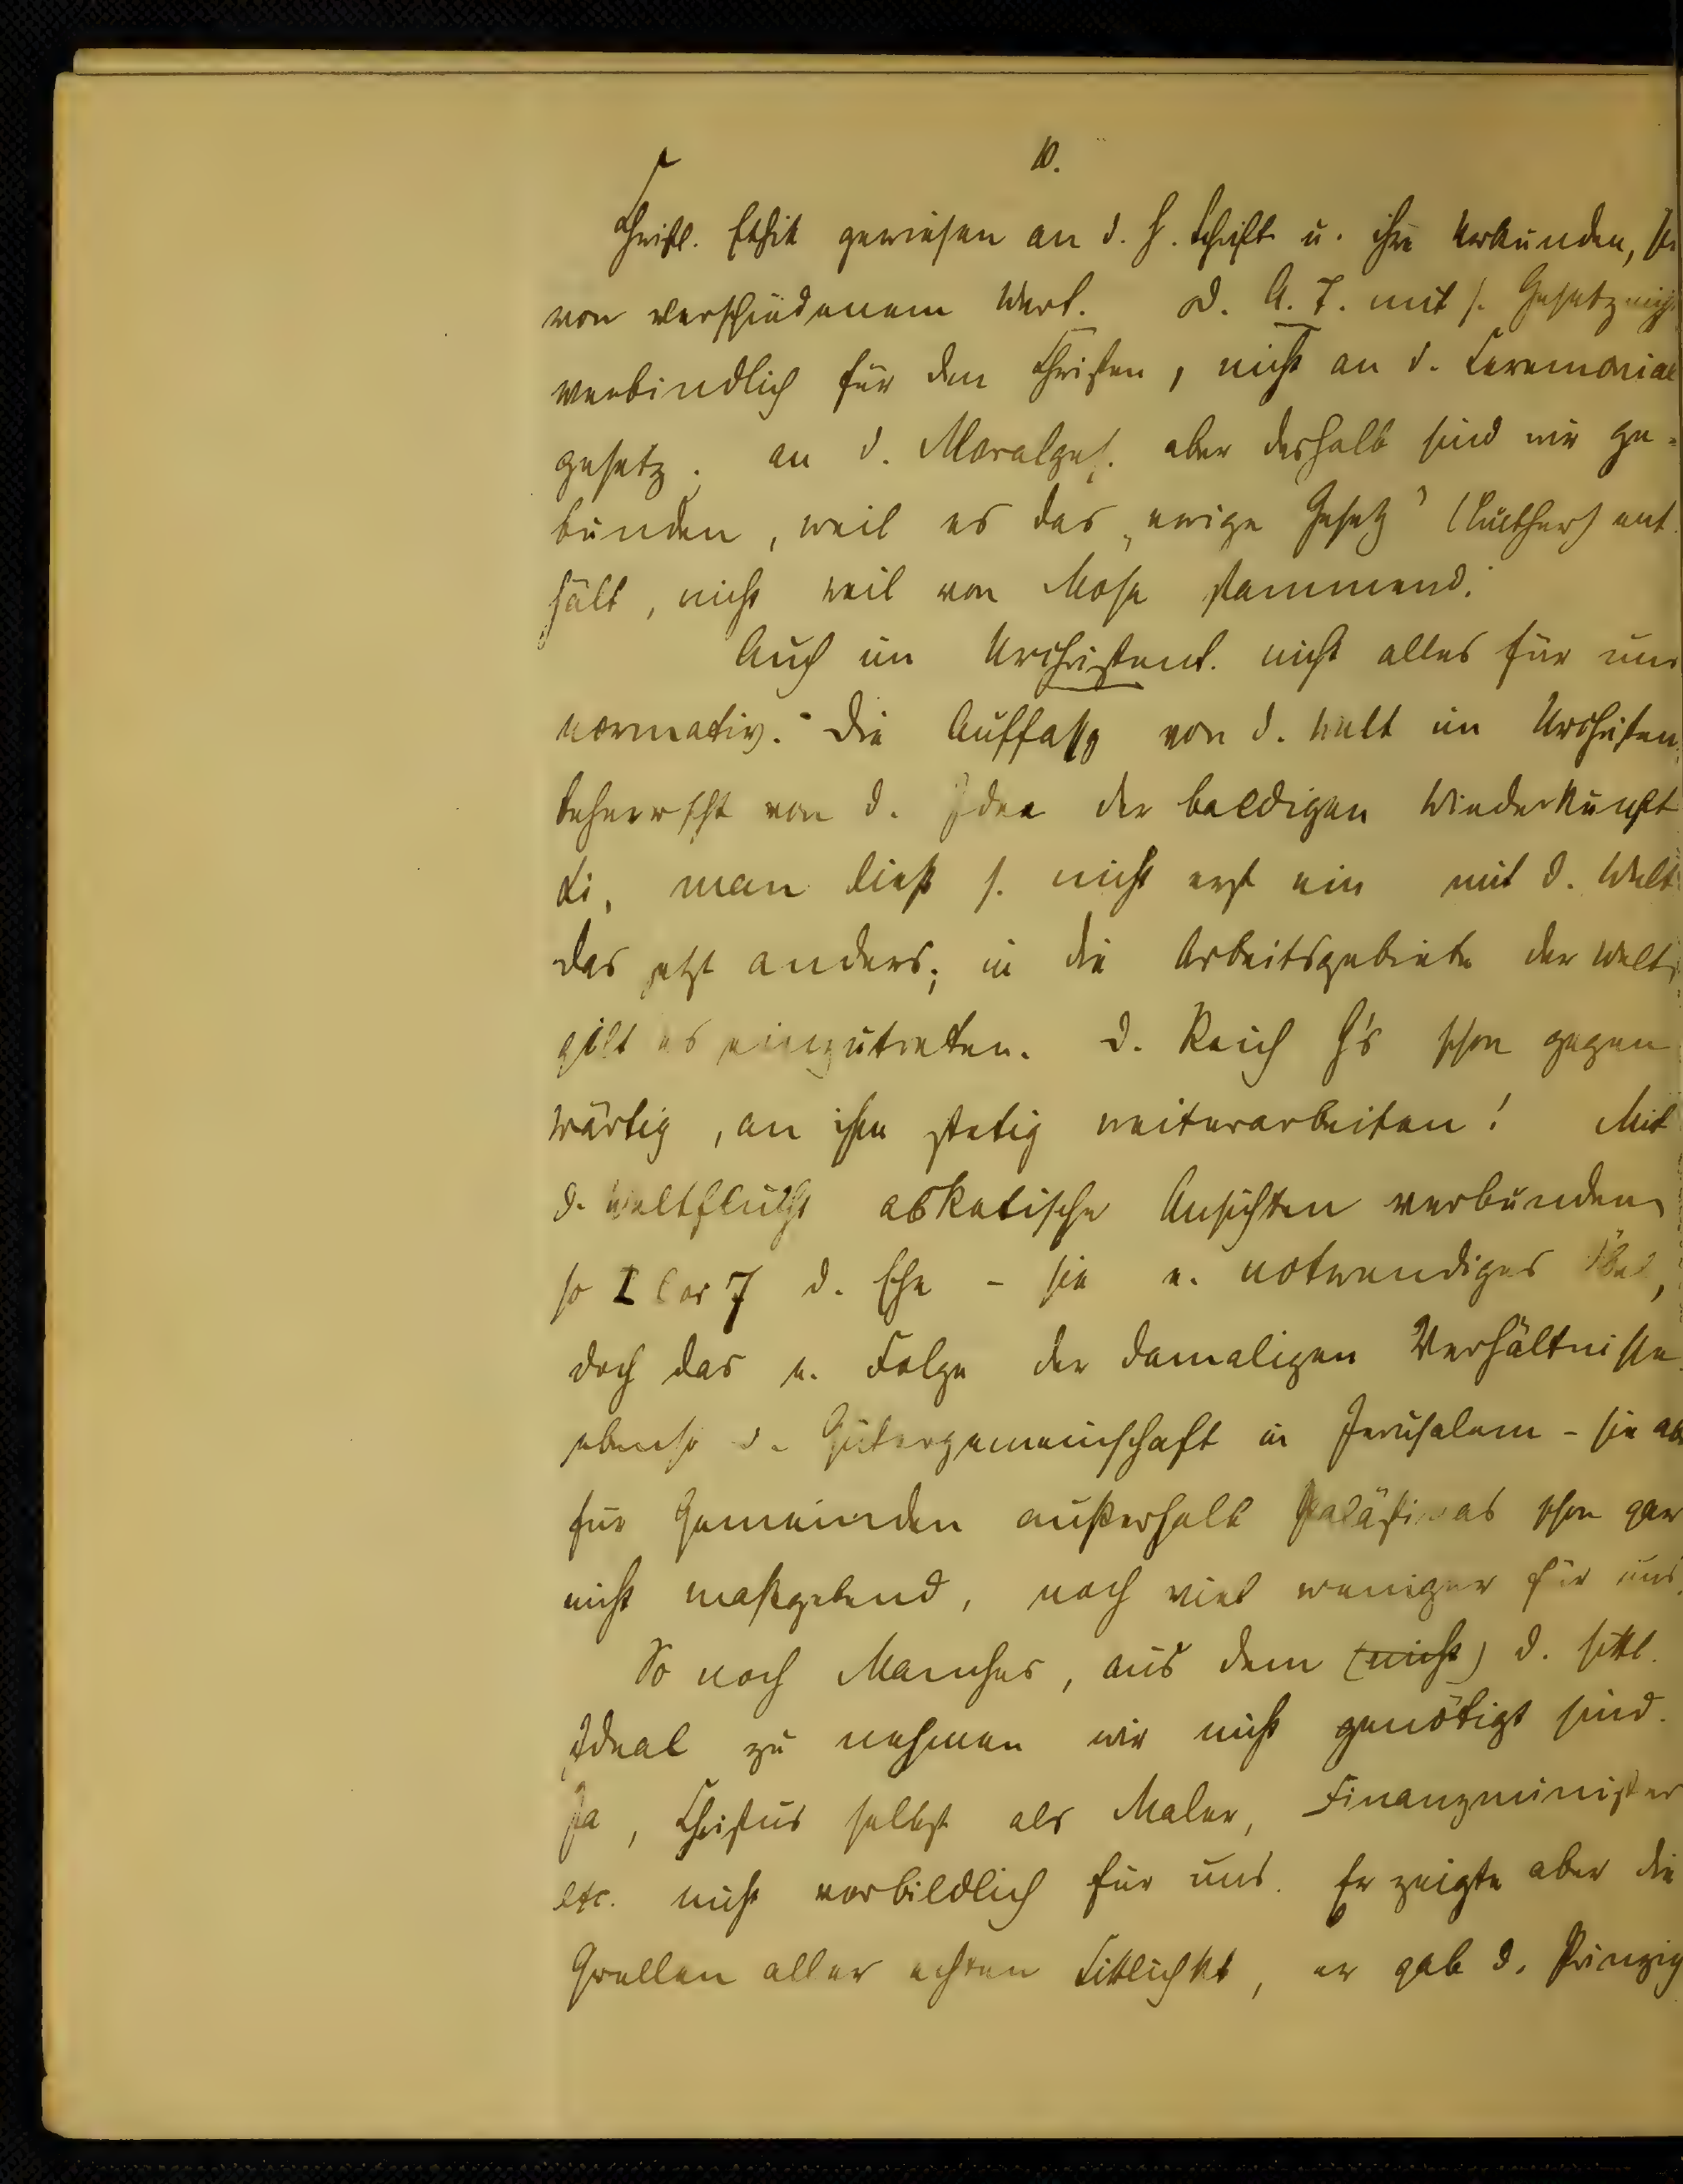 10.
Christl. Ethik gewiesen an d. h. Schrift u. ihre Urkunden,
von verschiedenem Wert. D. A. T. mit s. Gesetz nicht
verbindlich für den Christen, nicht an d. Ceremonial
gesetz. an d. Moralges. aber deshalb sind wir ge-
bunden, weil es das „ewige Gesetz" (Luther) ent
hält, nicht weil von Mose stammend.
Auch im Urchristent. nicht alles für uns
normativ. Die Auffassg von d. Welt im Urchristen
beherrscht von d. Idee der baldigen Wiederkunft
man ließ s. nicht erst ein mit d. Welt
das jetzt anders; in die Arbeitsgebiete der Welt
gilt es einzutreten. D. Reich G's schon gegen
wärtig, an ihm stetig weiterarbeiten! Mit
d. Weltflucht asketische Ansichten verbunden
so I Cor 7 d. Ehe - sie e. notwendiges Übel,
doch das e. Folge der damaligen Verhältnisse
ebenso d. Gütergemeinschaft in Jerusalem - sie ab
für Gemeinden außerhalb Palästinas schon gar
nicht maßgebend, noch viel weniger für uns.
So noch Manches, aus dem (nicht) d. sittl.
Ideal zu nehmen wir nicht genötigt sind.
Ja, Christus selbst als Maler, Finanzminister
etc. nicht vorbildlich für uns. Er zeigte aber die
Quellen aller echten Sittlichkt, er gab d. Prinzip